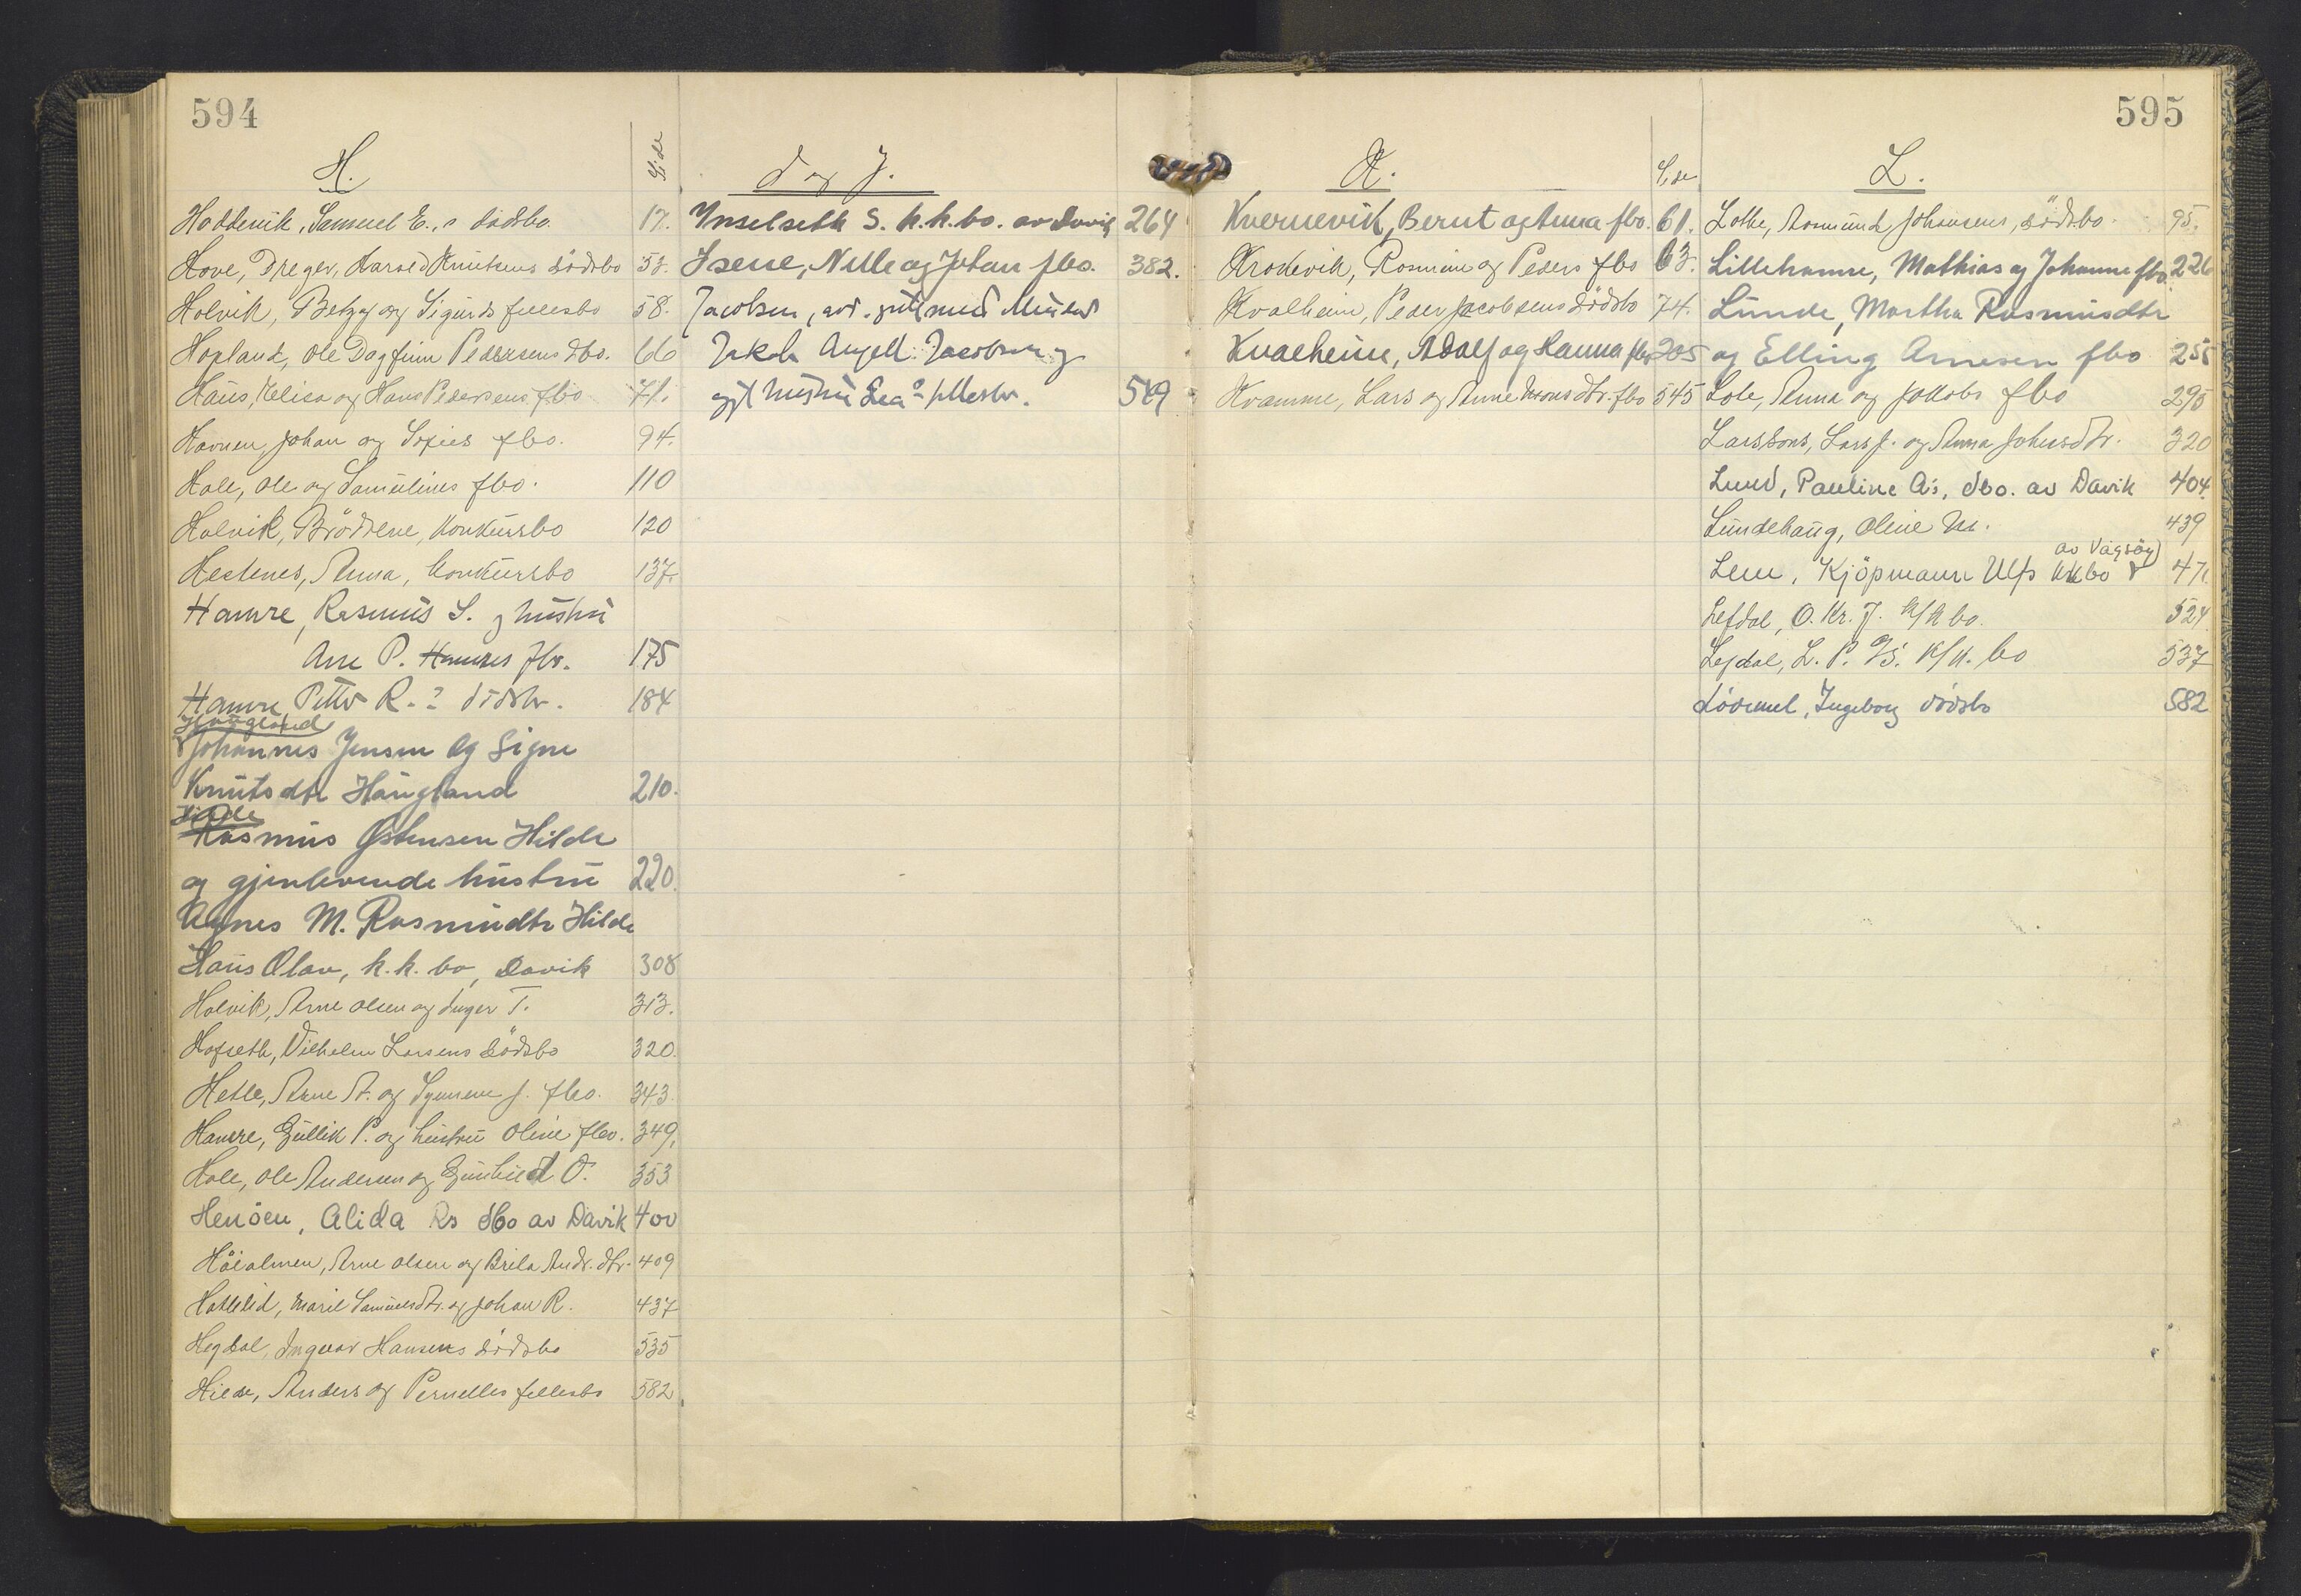 594
H.
Side
Hoddevik, Samuel E., s dødsbo. 17.
Hove, Dreger, Harald Knutsens dödsbo 53.
Holvik, Betzy og Sigurds fellesbo 58.
Hopland, Ole Dagfinn Pedersens dbo. 66
Haus, Relica og Hans Pedersens fbo 71.
Havnen, Johan og Sofies fbo. 94.
Hole, Ole og Samulines fbo. 110
Holvik, Brödrene, Konkursbo 120
Hestenes, Anna, konkursbo 137.
Hamre, Rasmus S. og hustru
Ane P. Hamres fbo. 175
Hamre Petter R. s dödsbo. 184
Haugland
Johannes Jensen og Signe
Knutsdtr Haugland 210.
Hilde
Rasmus Østensen Hilde
og gjenlevende hustru 220.
Agnes M. Rasmusdtr Hilde
Haus Olav, k.k. bo, Davik 308
Holvik, Arne Olsen og Inger T. 313.
Hofseth, Vilhelm Larsens dödsbo 320.
Hetle, Arne A. og Synneve J. fbo. 343.
Hamre, Gullik P. og hustru Oline fbo. 349.
Hole, Ole Andersen og Gunhild O. 353
Henöen, Alida Rs dbo av Davik 400
Høialmen, Arne Olsen og Brita Andr. dtr. 409
Hatlelid, Marie Samuelsdtr. og Johan R. 437
Hegdal, Ingvar Hansens dödsbo 535
Hilde, Anders og Pernelles fellesbo 582
I og J.
Ynselseth S. k.k. bo. av Davik 264
Isene, Nille og Johan fbo. 382.
Jacobsen, avd. med
Jakob Angell Jacobsen og
hustru Lea's fellesbo. 549
595
K.
Side
Kvernevik, Bernt og Anna fbo. 61.
Krokevik, Rasmine og Peders fbo 63.
Kvalheim, Peder Jacobsens dödsbo 74.
Kvalheim, Adolf og Hanna fbo 205
Kvamme, Lars og Anne Monsdtr. fbo 545
L.
Lothe, Rasmund Johansens, dödsbo. 95.
Lillehamre, Mathias og Johanne fbo. 226
Lunde, Martha Rasmusdtr
og Elling Arnesen fbo 255
Lote, Anna og Jakobs fbo 295
Larssons, Lars J. og Anna Johnsdtr. 320
Lund, Pauline A's, dbo. av Davik 404.
Lundehaug, Oline M. 439
av Vågsöy
Lem, Kjöpmann Ulfs kkbo 471.
Lefdal, O. Kr. J. k/k bo. 524.
Lefdal, L. P. %s. k/k. bo 537
Lödemel, Ingeborg dödsbo 582